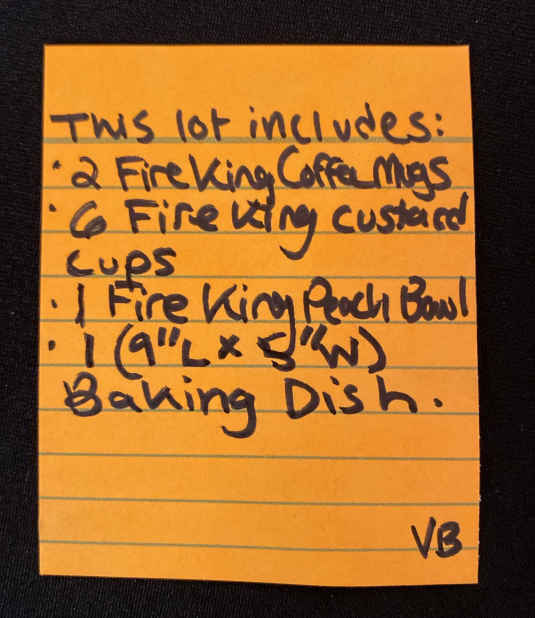 This lot includes:
• 2 Fire King Coffee Mugs
• 6 Fire King custard
cups
• 1 Fire King Peach Bowl
• 1 (9"L x 5"W)
Baking Dish.
VB